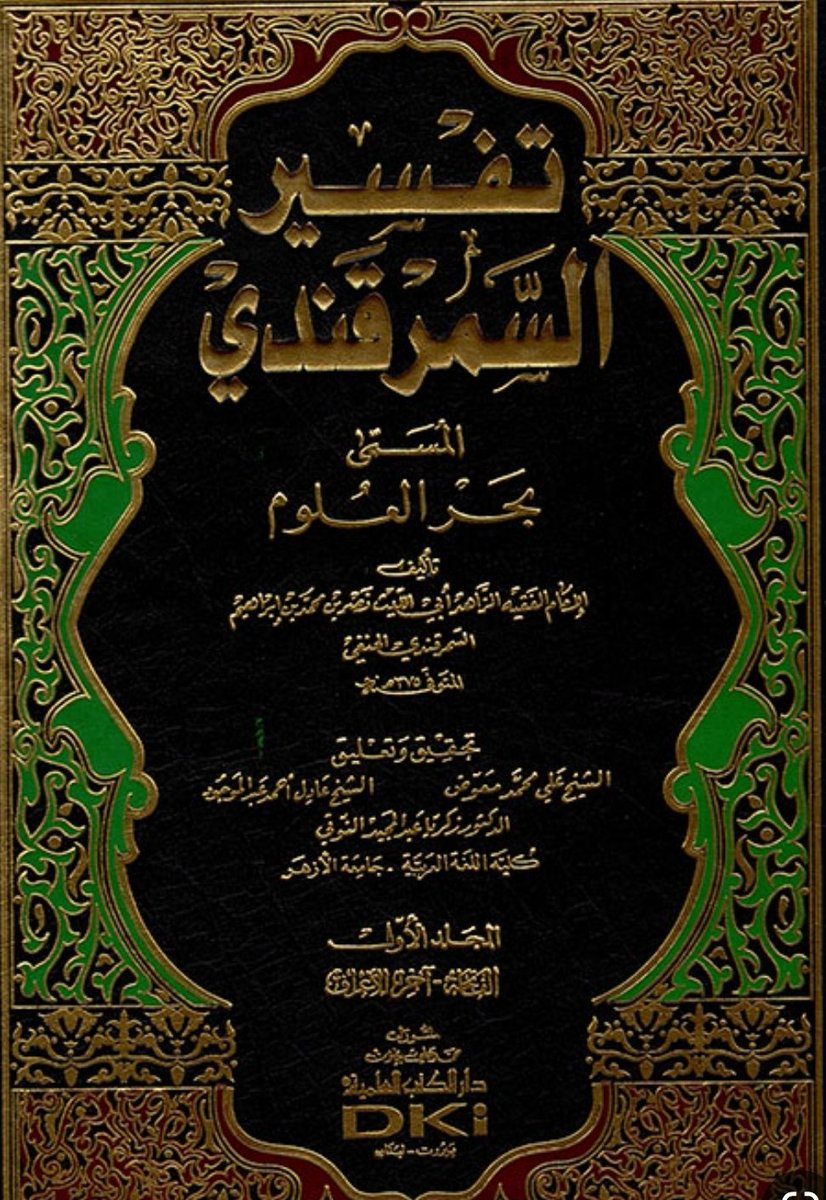 تفسير
السمرقندي
المسمى
بحر العلوم
تأليف
الإمام الفقيه الزاهد أبي الليث نصر بن محمد بن إبراهيم
السمرقندي الحنفي
المتوفى ٣٧٥هـ
تحقيق وتعليق
الشيخ علي محمد معوض الشيخ عادل أحمد عبد الموجود
الدكتور زكريا عبد المجيد النوتي
كلية اللغة العربية - جامعة الأزهر
المجلد الأول
الفاتحة - آخر الأعراف
منشورات
دار الكتب العلمية
DKi
بيروت - لبنان